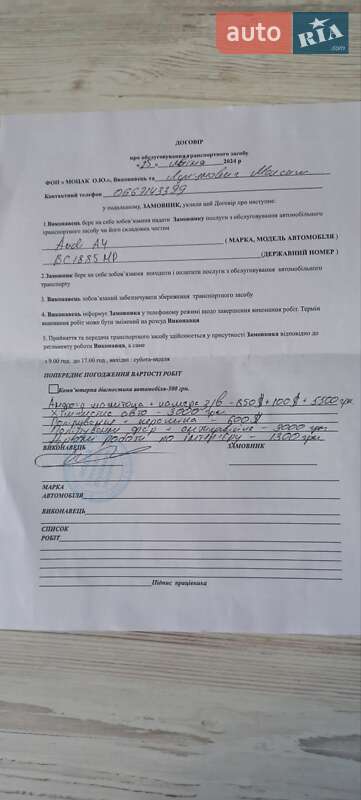 auto RIA.com
ДОГОВІР
про обслуговування транспортного засобу
2024 р
ФОП « МОЦАК О.Ю.», Виконавець та Максим
Контактний телефон 0667143399
у подальшому, ЗАМОВНИК, уклали цей Договір про наступне:
1 Виконавець бере на себе зобов'язання надати Замовнику послуги з обслуговування автомобільного
транспортного засобу чи його складових частин
Audi A4 ( МАРКА, МОДЕЛЬ АВТОМОБІЛЯ )
BC1885MP (ДЕРЖАВНИЙ НОМЕР )
2.Замовник бере на себе зобов'язання погодити і оплатити послуги з обслуговування автомобільного
транспорту
3. Виконавець зобов'язаний забезпечувати збереження транспортного засобу
4. Виконавець інформує Замовника у телефонному режимі щодо завершення виконання робіт. Термін
виконання робіт може бути змінений на розсуд Виконавця
5. Прийняття та передача транспортного засобу здійснюється у присутності Замовника відповідно до
регламенту роботи Виконавця, а саме
з 9.00 год. до 17.00 год , вихідні : субота-неділя
ПОПЕРЕДНЄ ПОГОДЖЕННЯ ВАРТОСТІ РОБІТ
Комп'ютерна діагностика автомобіля-500 грн.
+ б/в - 850 $ + 100 $ + 5500 грн
Хімчистка авто - 3000 грн
+ кераміка - 600 $
фар + - 3000 грн
роботи по інтер'єру - 1300 грн
ВИКОНАВЕЦЬ ЗАМОВНИК
МАРКА
АВТОМОБІЛЯ
ВИКОНАВЕЦЬ
СПИСОК
РОБІТ
Підпис працівника